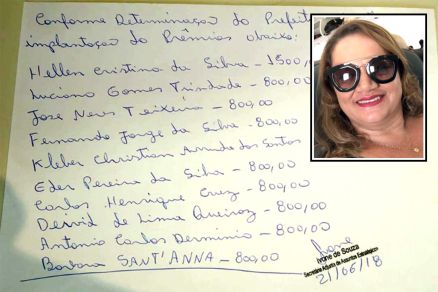 Conforme Determinação do Prefeito
implantação do Prêmios abaixo:
Hellen Cristina da Silva - 1500,
Luciano Gomes Trindade - 800,00
Jose Neres Teixeira - 800,00
Fernando Jorge da Silva - 800,00
Kleber Christian Arruda dos Santos
Eder Pereira da Silva - 800,00
Carlos Henrique Cruz - 800,00
Deivid de Lima Queiroz - 800,00
Antonio Carlos Derminio - 800,00
Barbara SANT'ANNA - 800,00
Ivone de Souza
Secretária Adjunta de Assuntos Estratégicos
21/06/18